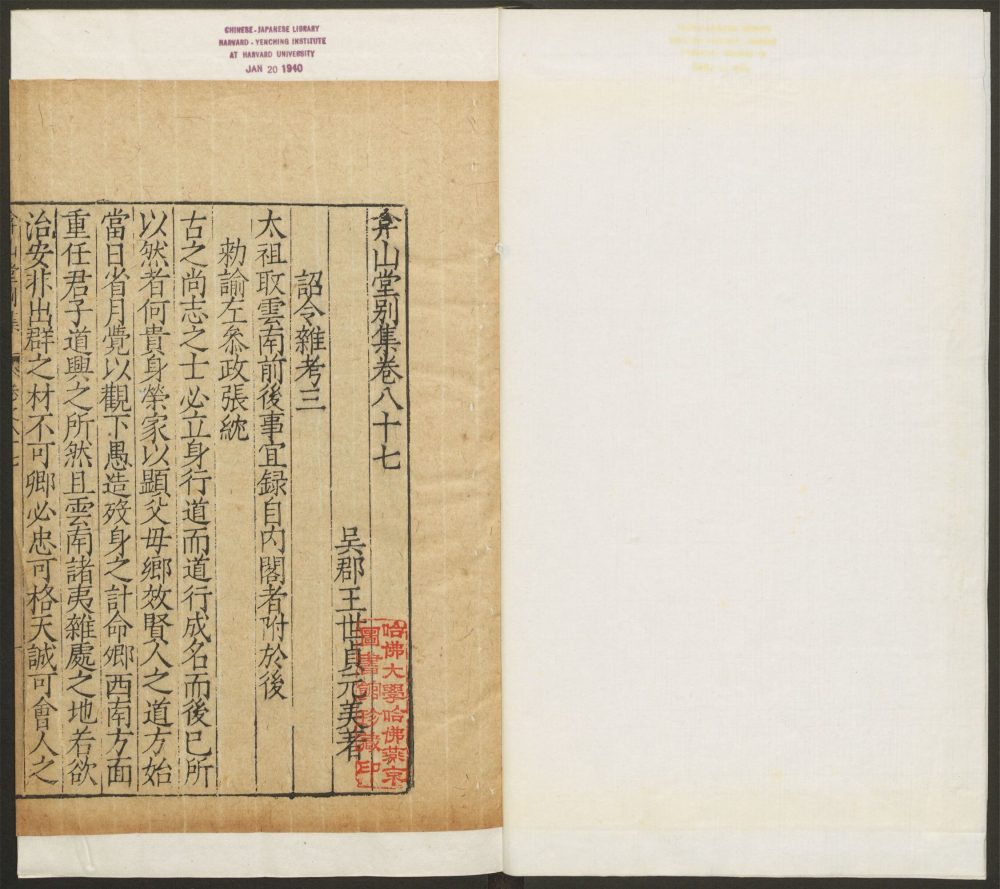 CHINESE-JAPANESE LIBRARY
HARVARD-YENCHING INSTITUTE
AT HARVARD UNIVERSITY
JAN 20 1940
弇山堂别集卷八十七
吳郡王世貞元美著
詔令雜考三
太祖取雲南前後事宜録自内閣者附於後
勑諭左叅政張紞
古之尚志之士必立身行道而道行成名而後已所
以然者何貴身榮家以顯父母鄉效賢人之道方始
當日省月覺以觀下愚造殁身之計命鄉西南方面
重任君子道興之所然且雲南諸夷雜處之地若欲
治安非出群之材不可卿必忠可格天誠可會人之
哈佛大學哈佛燕京
圖書館珍藏印